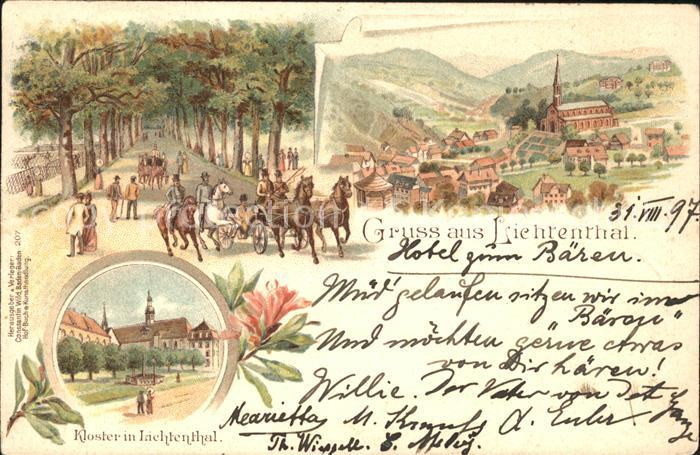 31. VIII. 97.
Gruss aus Lichtenthal.
Hotel zum Bären.
Müd' gelaufen sitzen wir im
"Bären"
Und möchten gerne etwas
von Dir hören!
Willie. Der Vater von
Marietta M. A. Euler
Th.
Herausgeber u. Verleger:
Constantin Wild, Baden-Baden 207
Hof-Buch- u. Kunsthandlung.
Kloster in Lichtenthal.